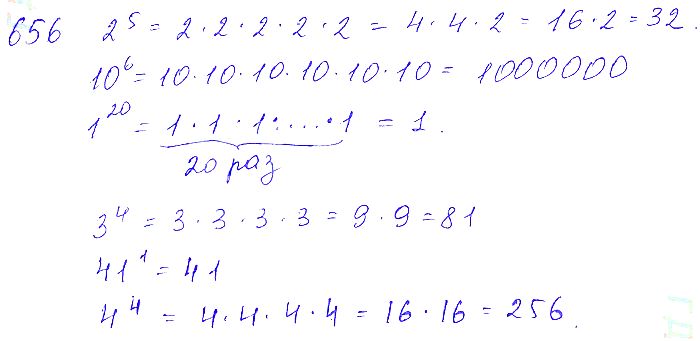 656 2⁵ = 2 · 2 · 2 · 2 · 2 = 4 · 4 · 2 = 16 · 2 = 32.
10⁶ = 10 · 10 · 10 · 10 · 10 · 10 = 1000000
1²⁰ = 1 · 1 · 1 · ... · 1 = 1.
20 раз
3⁴ = 3 · 3 · 3 · 3 = 9 · 9 = 81
41¹ = 41
4⁴ = 4 · 4 · 4 · 4 = 16 · 16 = 256.